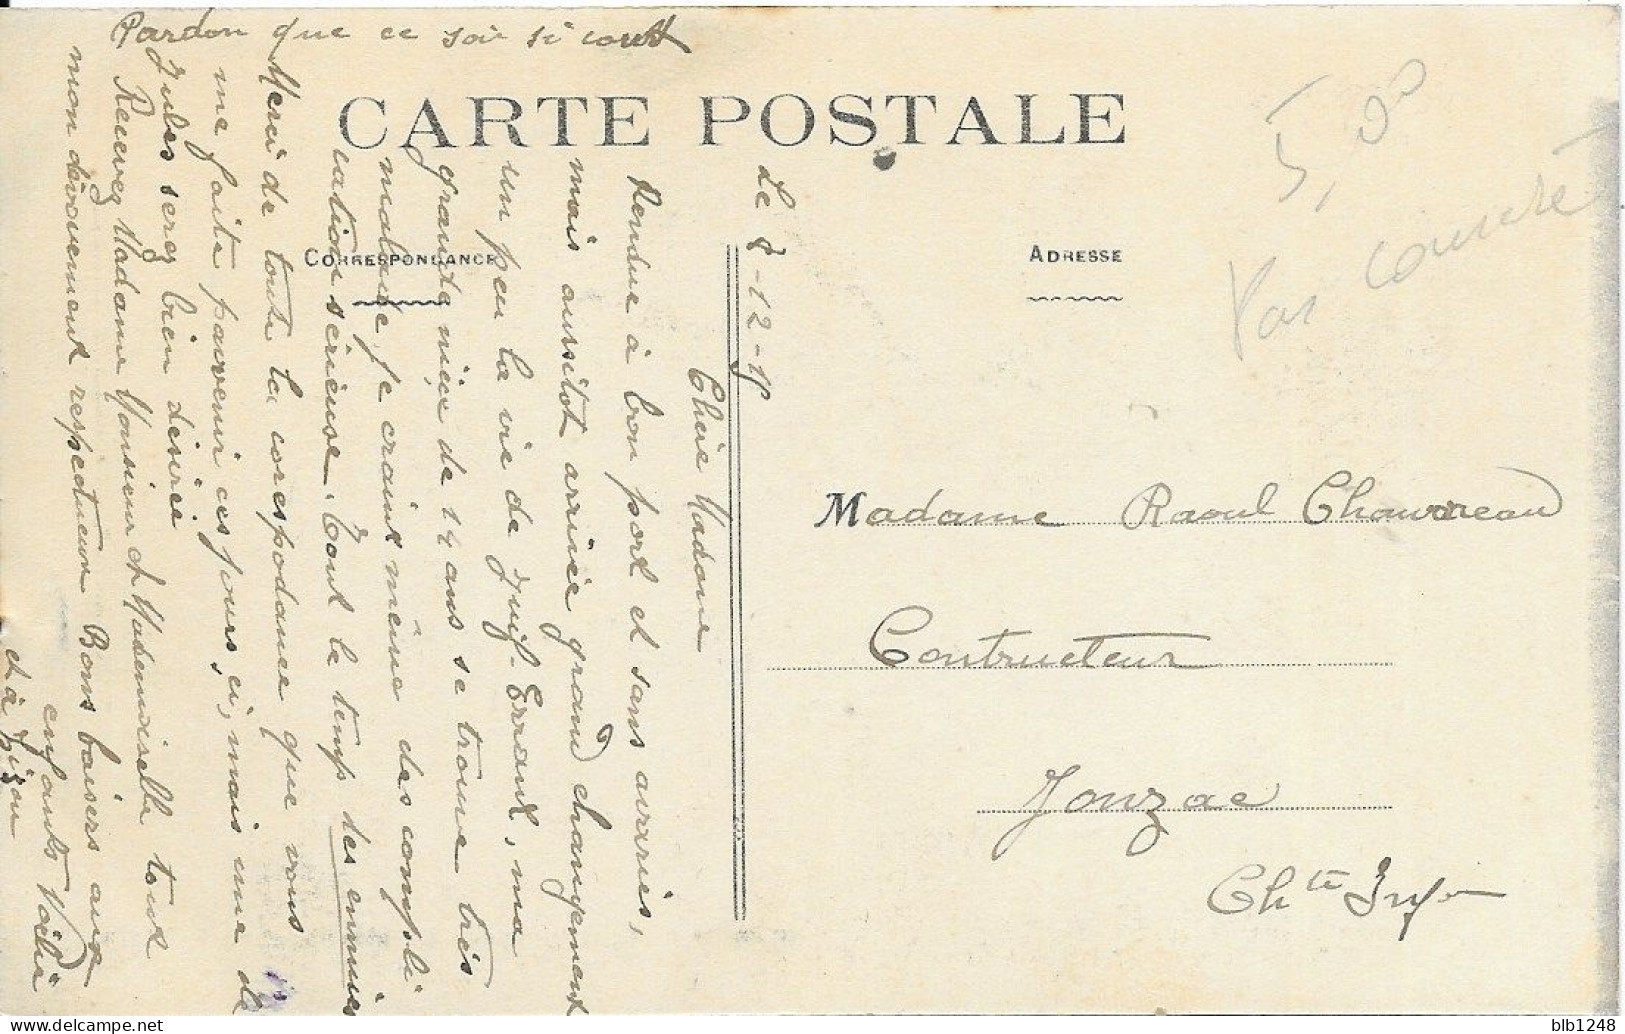 Pardon que ce soi si court
CARTE POSTALE
CORRESPONDANCE
ADRESSE
5,00
Pas courante
Le 8-12-15
Chère Madame
Rendue à bon port et sans arrries,
mais aussitot arrivée grand changement
un peu la vie de juif-Errant, ma
grande nièce de 14 ans se trouve très
malade je craint même des compli
cations sérieuse. Tout le temp des ennuies
Merci de toute la correspodance que vous
me faite parvenir ces jours,ci, mais une de
Jules serez bien désirée
Recevez Madame Monsieur et Mademoiselle tout
mon dévouement respectueux Bons baisers aux
enfants
et à
Madame Raoul Chauvreau
Contructeur
Jonzac
Ch^te Infre
blb1248